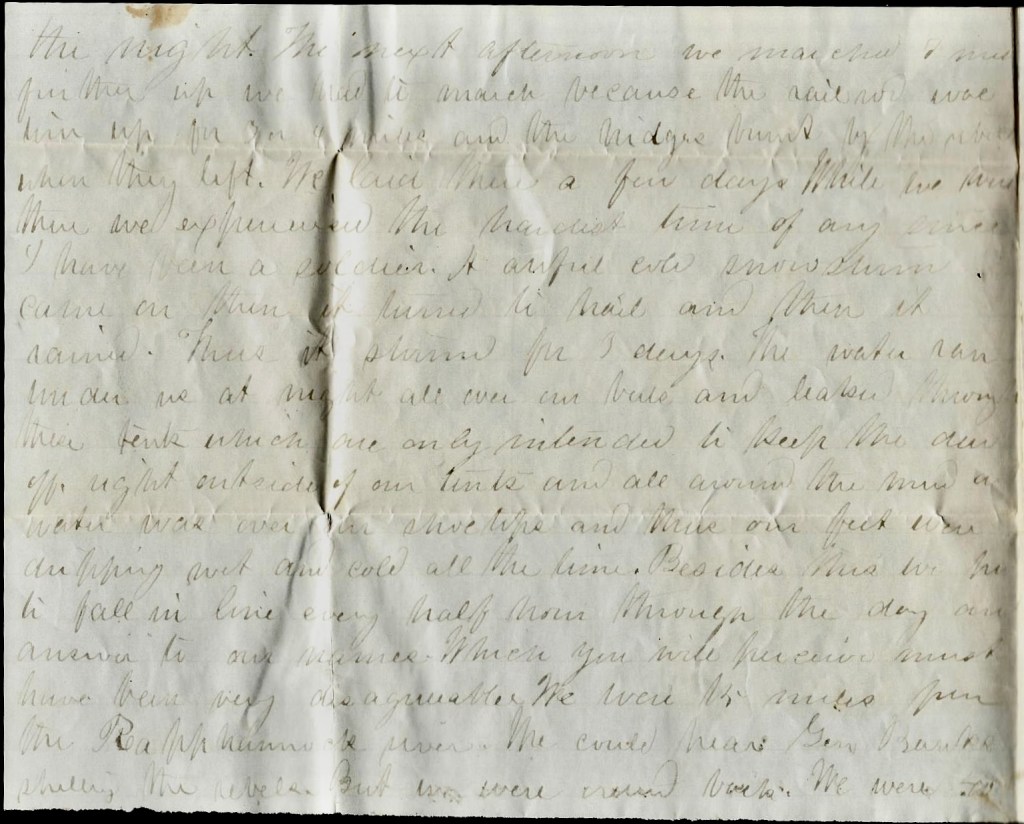 the night. The next afternoon we marched
further up we had to march because the railroad was
torn up for 3 or 4 miles and the bridges burnt by the rebels
when they left. We laid there a few days While we were
there we experienced the hardest time of any since
I have been a soldier. A awful cold snow storm
came on then it turned to hail and then it
rained. Thus it stormed for 3 days. The water ran
under us at night all over our beds and leaked through
these tents which are only intended to keep the dew
off. right outside of our tents and all around the mud
water was over our shoe tops and thus our feet were
dripping wet and cold all the time. Besides this we
to fall in line every half hour through the day an
answer to our names. Which you will perceive must
have been very disagreeable, We were 15 miles from
the Rapphannock river. We could hear Gen Banks
shelling the rebels. But we were back. We were